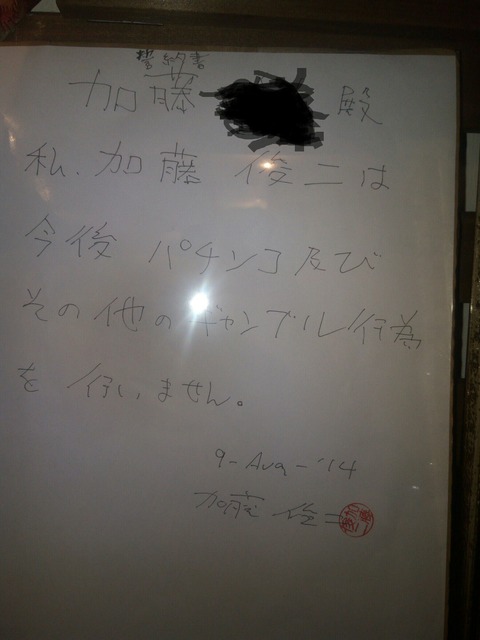 誓約書
加藤 殿
私、加藤 俊二は
今後 パチンコ及び
その他のギャンブル行為
を 行いません。
9-Aug-'14
加藤 俊二